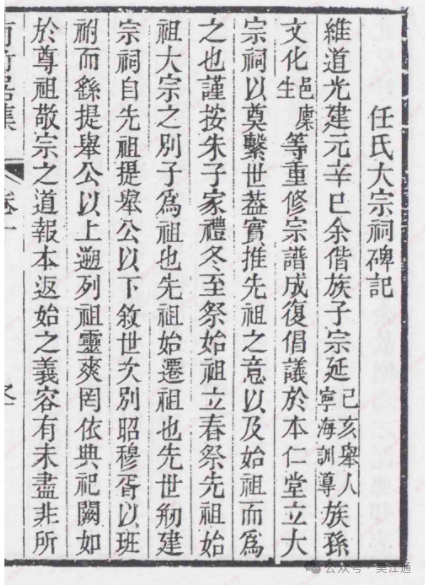 任氏大宗祠碑記
維道光建元辛巳余偕族子宗延己亥舉人寧海訓導族孫
文化邑廩生等重修宗譜成復倡議於本仁堂立大
宗祠以奠繫世葢實推先祖之意以及始祖而為
之也謹按朱子家禮冬至祭始祖立春祭先祖始
祖大宗之別子為祖也先祖始遷祖也先世剏建
宗祠自先祖提舉公以下敘世次別昭穆胥以班
祔而繇提舉公以上遡列祖靈爽罔依典祀闕如
於尊祖敬宗之道報本返始之義容有未盡非所
有竹居集 卷十
公众号 · 吴江通